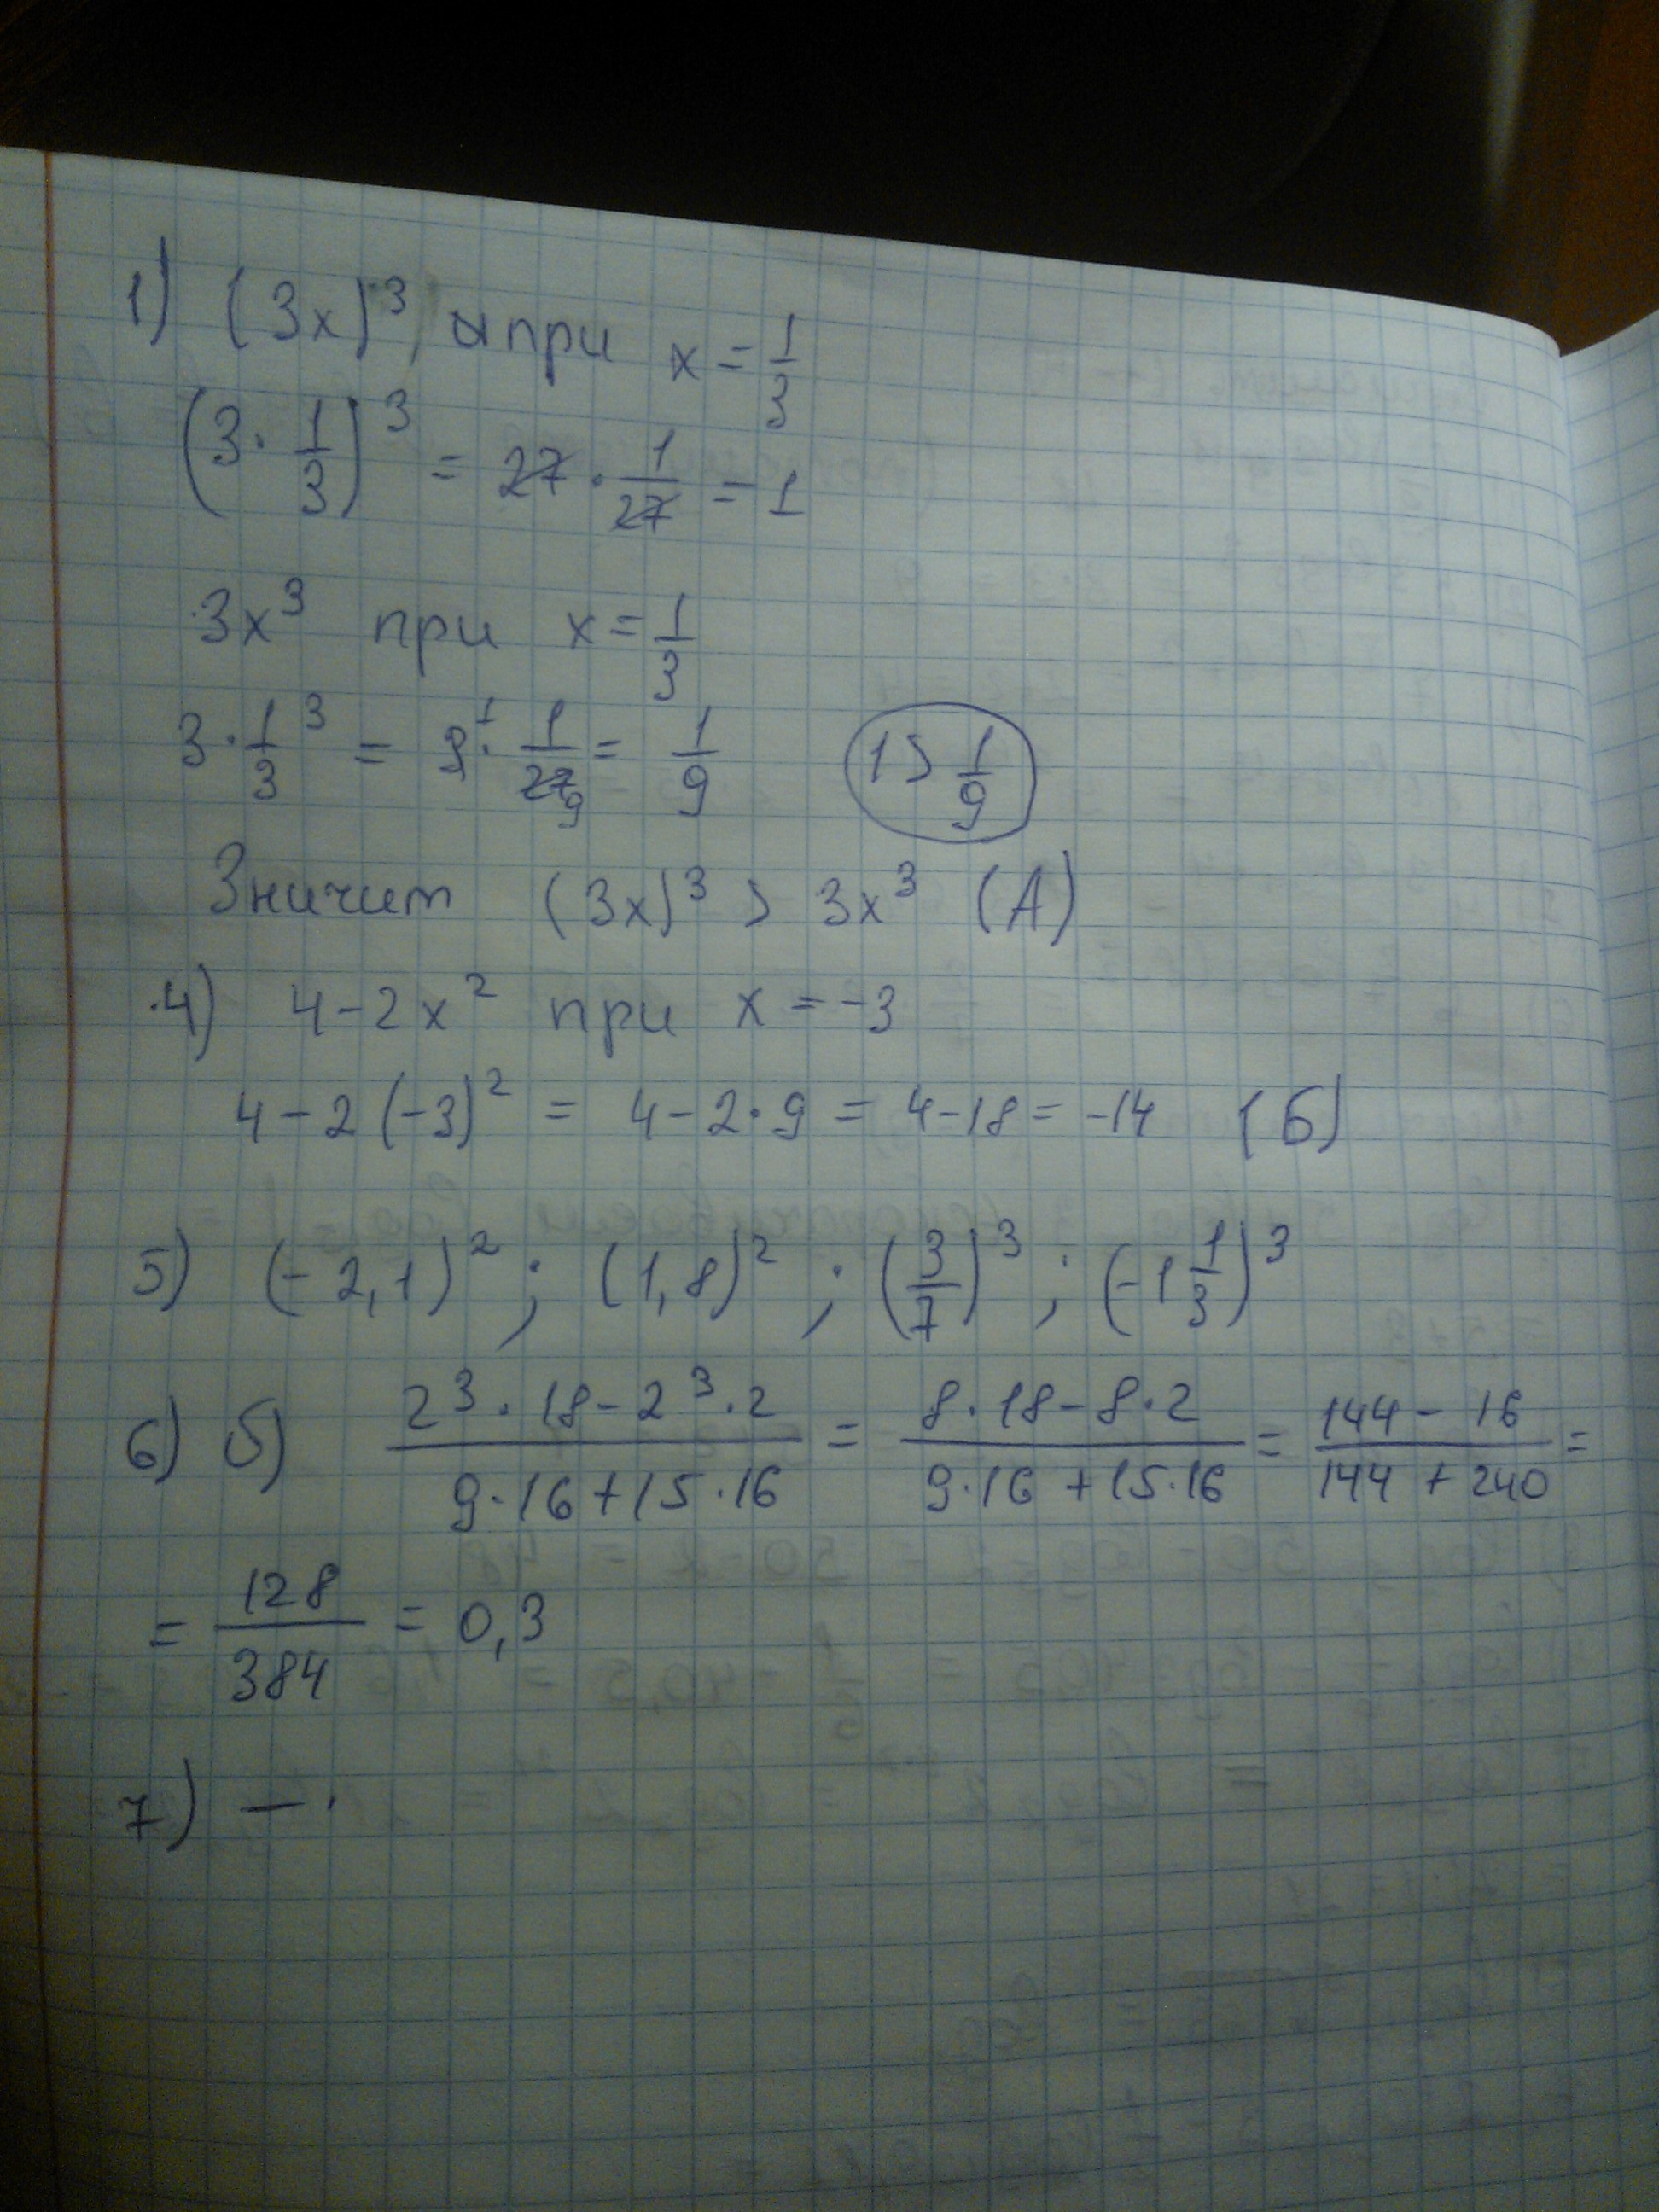 1) (3x)³, и при x = 1/3
(3 · 1/3)³ = 27 · 1/27 = 1
3x³ при x = 1/3
3 · 1/3³ = 3¹ · 1/27 9 = 1/9 1 > 1/9
Значит (3x)³ > 3x³ (А)
4) 4 - 2x² при x = -3
4 - 2(-3)² = 4 - 2·9 = 4 - 18 = -14 (Б)
5) (-2,1)² ; (1,8)² ; (3/7)³ ; (-1 1/3)³
6) б) (2³·18 - 2³·2)/(9·16 + 15·16) = (8·18 - 8·2)/(9·16 + 15·16) = (144 - 16)/(144 + 240) =
= 128/384 = 0,3
7) — ·